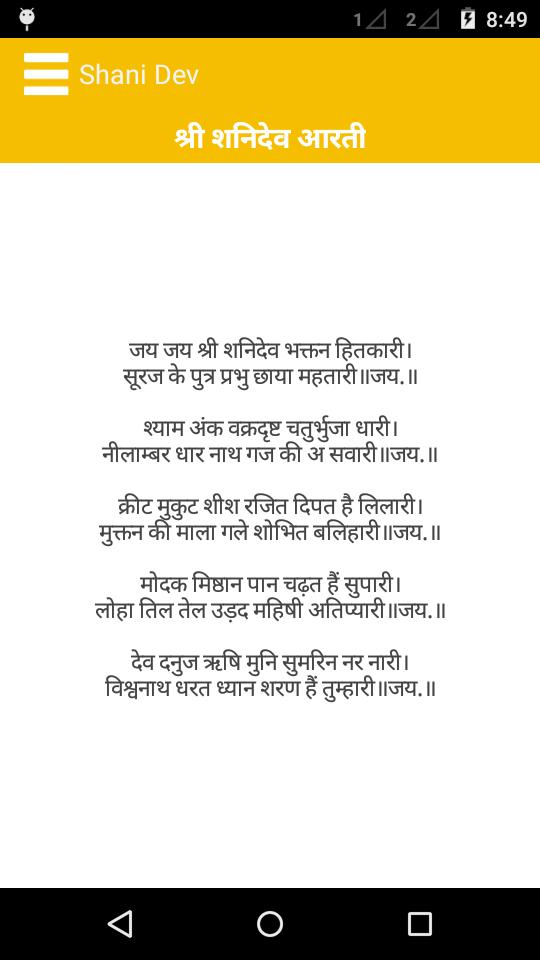 1 2 8:49
Shani Dev
श्री शनिदेव आरती
जय जय श्री शनिदेव भक्तन हितकारी।
सूरज के पुत्र प्रभु छाया महतारी॥जय.॥
श्याम अंक वक्रदृष्ट चतुर्भुजा धारी।
नीलाम्बर धार नाथ गज की अ सवारी॥जय.॥
क्रीट मुकुट शीश रजित दिपत है लिलारी।
मुक्तन की माला गले शोभित बलिहारी॥जय.॥
मोदक मिष्ठान पान चढ़त हैं सुपारी।
लोहा तिल तेल उड़द महिषी अतिप्यारी॥जय.॥
देव दनुज ऋषि मुनि सुमरिन नर नारी।
विश्वनाथ धरत ध्यान शरण हैं तुम्हारी॥जय.॥